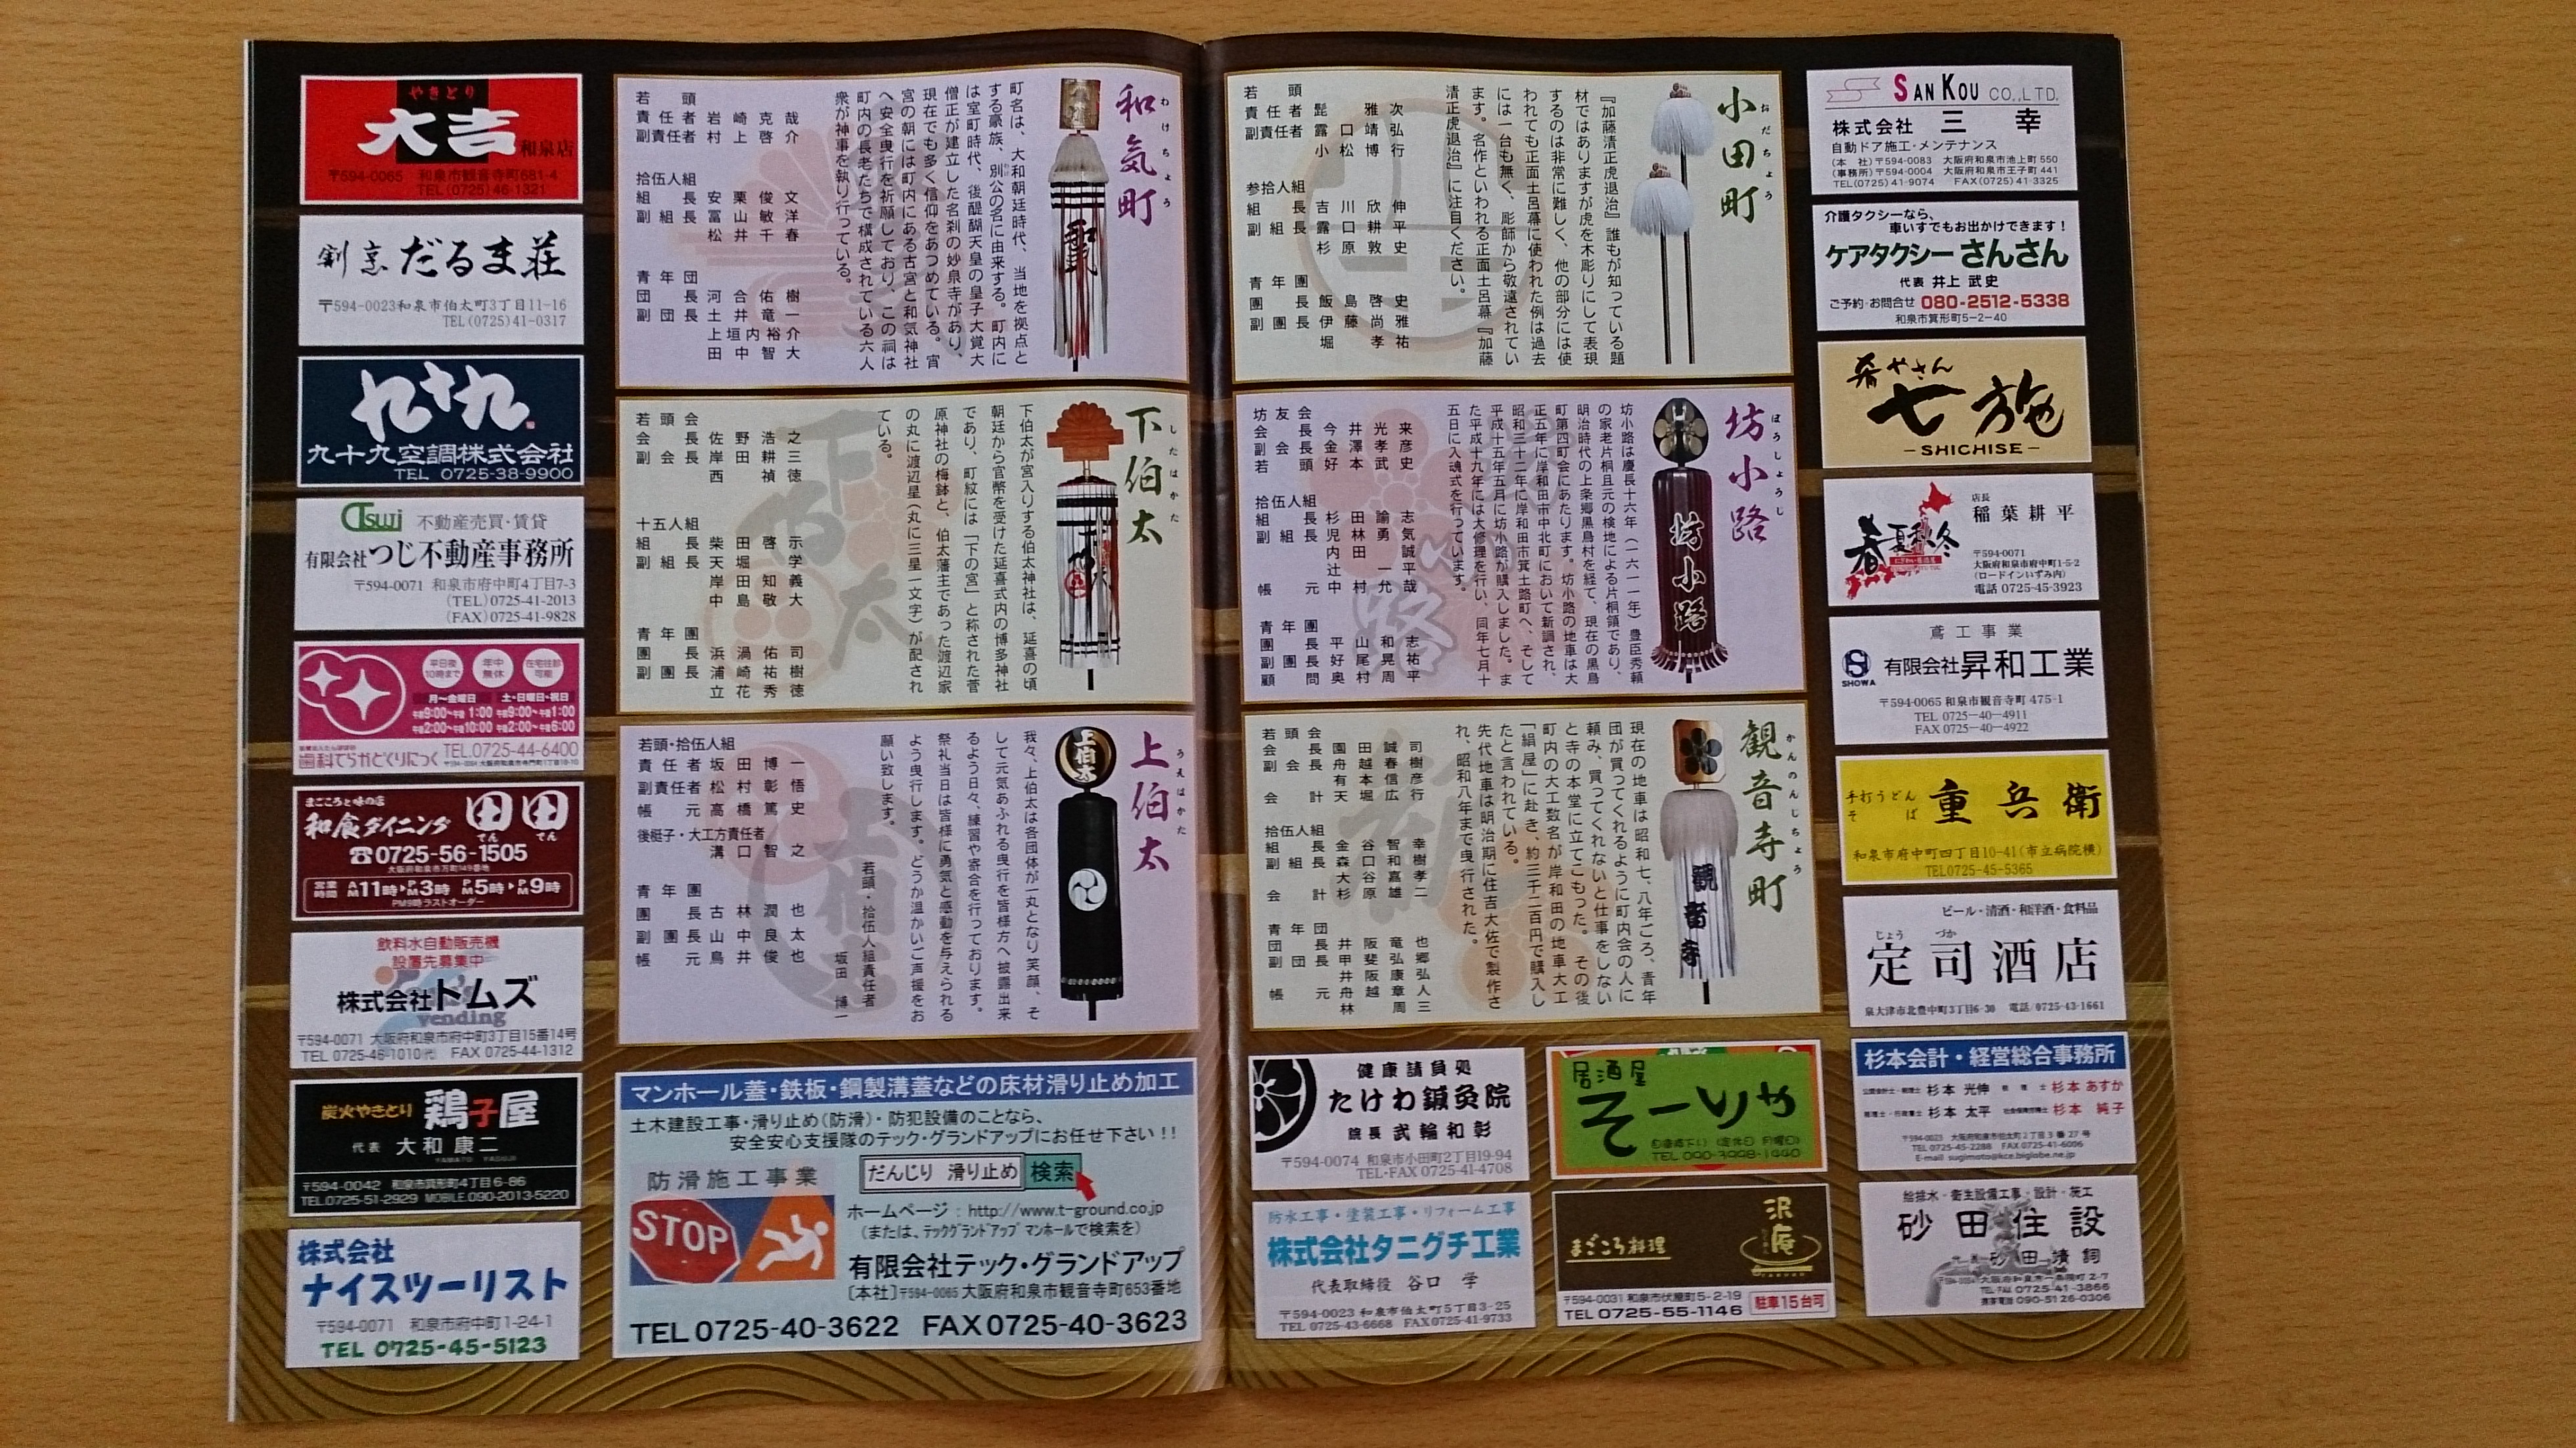 やきとり
大吉
和泉店
〒594-0065 和泉市観音寺町681-4
TEL(0725)46-1321
割烹 だるま荘
〒594-0023 和泉市伯太町3丁目11-16
TEL(0725)41-0317
九十九
九十九空調株式会社
TEL 0725-38-9900
Tsuji 不動産売買・賃貸
有限会社つじ不動産事務所
〒594-0071 和泉市府中町4丁目7-3
(TEL)0725-41-2013
(FAX)0725-41-9828
平日夜10時まで
年中無休
在宅往診可能
月〜金曜日 土・日曜日・祝日
午前9:00〜午後1:00 午前9:00〜午後1:00
午後2:00〜午後10:00 午後2:00〜午後6:00
歯科てらかどくりにっく TEL.0725-44-6400
まごころと味の店
和食ダイニング 田田
てん てん
☎0725-56-1505
営業時間 AM11時▸PM3時 PM5時▸PM9時
PM9時ラストオーダー
飲料水自動販売機
設置先募集中
株式会社トムズ
vending
〒594-0071 大阪府和泉市府中町3丁目15番14号
TEL 0725-46-1010㈹ FAX 0725-44-1312
炭火やきとり 鶏子屋
代表 大和 康二
〒594-0042 和泉市箕形町4丁目6-86
TEL.0725-51-2929 MOBILE.090-2013-5220
株式会社
ナイスツーリスト
〒594-0071 和泉市府中町1-24-1
TEL 0725-45-5123
和気町
わけちょう
町名は、大和朝廷時代、当地を拠点と
する豪族、別公の名に由来する。町内に
は室町時代、後醍醐天皇の皇子大覚大
僧正が建立した名刹の妙泉寺があり、
現在でも多く信仰をあつめている。宵
宮の朝には町内にある古宮と和気神社
へ安全曳行を祈願しており、この祠は
町内の長老たちで構成されている六人
衆が神事を執り行っている。
若頭
責任者 岩崎克哉
副責任者 村上啓介
拾伍人組
組長 安栗俊文
副組長 冨山敏洋
松井千春
青年団
団長 河合佑樹
副団長 土井竜一
上垣内裕介
田中智大
下伯太
しもはかた
下伯太が宮入りする伯太神社は、延喜の頃
朝廷から官幣を受けた延喜式内の博多神社
であり、町紋には「下の宮」と称された菅
原神社の梅鉢と、伯太藩主であった渡辺家
の丸に渡辺星(丸に三星一文字)が配され
ている。
若頭会
会長 佐野浩之
副会長 岸田耕三
西禎徳
十五人組
組長 柴田啓示
副組長 天堀学
岸田知義
中島敬大
青年團
團長 浜渦佑司
副團長 浦崎祐樹
立花秀徳
上伯太
うえはかた
我々、上伯太は各団体が一丸となり笑顔、そ
して元気あふれる曳行を皆様方へ披露出来
るよう日々、練習や寄合を行っております。
祭礼当日は皆様に勇気と感動を与えられる
よう曳行します。どうか温かいご声援をお
願い致します。
若頭・拾伍人組責任者
坂田 博一
若頭・拾伍人組
責任者 坂田博一
副責任者 松村彰悟
帳元 高橋篤史
後梃子・大工方責任者
溝口智之
青年團
團長 古林潤也
副團長 山中良太
帳元 鳥井俊也
マンホール蓋・鉄板・鋼製溝蓋などの床材滑り止め加工
土木建設工事・滑り止め(防滑)・防犯設備のことなら、
安全安心支援隊のテック・グランドアップにお任せ下さい!!
防滑施工事業
STOP
だんじり 滑り止め 検索
ホームページ:http://www.t-ground.co.jp
(または、テックグランドアップ マンホールで検索を)
有限会社テック・グランドアップ
[本社]〒594-0065 大阪府和泉市観音寺町653番地
TEL 0725-40-3622 FAX 0725-40-3623
小田町
おだちょう
『加藤清正虎退治』誰もが知っている題
材ではありますが虎を木彫りにして表現
するのは非常に難しく、他の部分には使
われても正面土呂幕に使われた例は過去
には一台も無く、彫師から敬遠されてい
ます。名作といわれる正面土呂幕『加藤
清正虎退治』に注目ください。
若頭
責任者 髭雅次
副責任者 露口靖弘
小松博行
参拾人組
組長 吉川欣伸
副組長 露口耕平
杉原敦史
青年團
團長 飯島啓史
副團長 伊藤尚雅
堀孝祐
坊小路
ぼうしょうじ
坊小路は慶長十六年(一六一一年)豊臣秀頼
の家老片桐且元の検地による片桐領であり、
明治時代の上条郷黒鳥村を経て、現在の黒鳥
町第四町会にあたります。坊小路の地車は大
正五年に岸和田市中北町において新調され、
昭和三十二年に岸和田市箕土路町へ、そして
平成十五年五月に坊小路が購入しました。ま
た平成十九年には大修理を行い、同年七月十
五日に入魂式を行っています。
坊友会
会長 今井光来
副会長 金澤孝彦
若頭 好本武史
拾伍人組
組長 杉田諭志
副組長 児林勇気
内田誠
辻一平
帳元 中村允哉
青年團
團長 平山和志
副團長 好尾晃祐
顧問 奥村周平
観音寺町
かんのんじちょう
現在の地車は昭和七、八年ごろ、青年
団が買ってくれるように町内会の人に
頼み、買ってくれないと仕事をしない
と寺の本堂に立てこもった。その後
町内の大工数名が岸和田の地車大工
「絹屋」に赴き、約三千二百円で購入し
たと言われている。
先代地車は明治期に住吉大佐で製作さ
れ、昭和八年まで曳行された。
若頭会
会長 園田誠司
副会長 舟越春樹
有本信彦
会計 天堀広行
拾伍人組
組長 金谷智幸
副組長 森口和樹
大谷嘉孝
会計 杉原雄二
青年団
団長 井阪竜也
副団長 甲斐弘郷
井阪康弘
帳元 舟越章人
林周三
SAN KOU CO.,LTD.
株式会社 三幸
自動ドア施工・メンテナンス
(本社)〒594-0083 大阪府和泉市池上町550
(事務所)〒594-0004 大阪府和泉市王子町441
TEL(0725)41-9074 FAX(0725)41-3325
介護タクシーなら、
車いすでもお出かけできます!
ケアタクシー さんさん
代表 井上 武史
ご予約・お問合せ 080-2512-5338
和泉市箕形町5-2-40
肴やさん
七施
-SHICHISE-
春夏秋冬
店長
稲葉耕平
〒594-0071
大阪府和泉市府中町1-5-2
(ロードインいずみ内)
電話 0725-45-3923
鳶工事業
SHOWA
有限会社昇和工業
〒594-0065 和泉市観音寺町475-1
TEL 0725-40-4911
FAX 0725-40-4922
手打うどん
そば
重兵衛
和泉市府中町四丁目10-41(市立病院横)
TEL0725-45-5365
ビール・清酒・和洋酒・食料品
じょう づか
定司酒店
泉大津市北豊中町3丁目6-30 電話/0725-43-1661
杉本会計・経営総合事務所
杉本 光伸 杉本 あすか
杉本 太平 杉本 純子
〒594-0023 大阪府和泉市伯太町2丁目3番27号
TEL 0725-45-2288 FAX 0725-41-6006
E-mail sugimoto@kce.biglobe.ne.jp
給排水・衛生設備工事・設計・施工
砂田住設
砂田 清詞
大阪府和泉市一条院町2-7
TEL・FAX 0725-41-3866
携帯電話 090-5126-0306
健康請負処
たけわ鍼灸院
院長 武輪和彰
〒594-0074 和泉市小田町2丁目19-94
TEL・FAX 0725-41-4708
居酒屋
そーりゃ
TEL 090-3998-1440
防水工事・塗装工事・リフォーム工事
株式会社タニグチ工業
代表取締役 谷口 学
〒594-0023 和泉市伯太町5丁目3-25
TEL 0725-43-6668 FAX0725-41-9733
まごころ料理
沢庵
〒594-0031 和泉市伏屋町5-2-19
TEL 0725-55-1146 駐車15台可